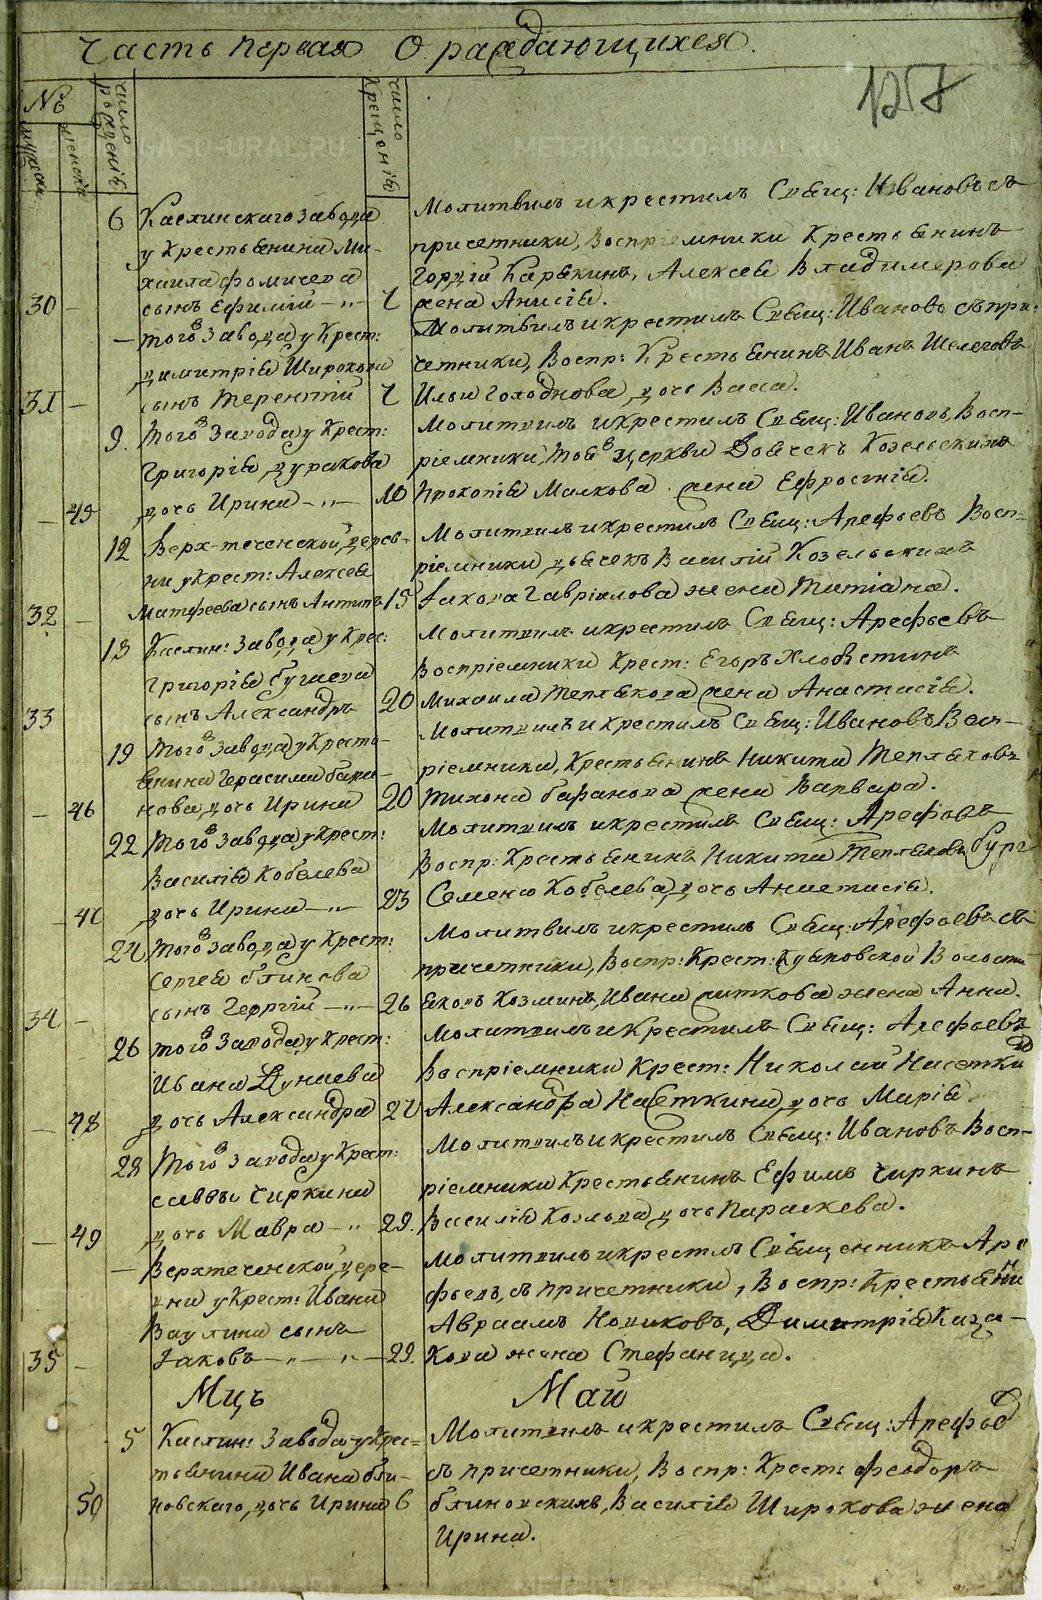 Часть первая О раждающихся.
157
№
мужеска
женска
число рожденій
число крещеній
6 Каслинскаго завода Молитвилъ и крестилъ Свящ: Ивановъ съ
у крестьянина Ми- причетники, Воспріемники Крестьянинъ
хаила Фомичева Гордій Карякинъ, Алексея Владимерова
30 - сынъ Ефимій - „ - 7 жена Анисія.
- того завода у Крест: Молитвилъ и крестилъ Свящ: Ивановъ съ при-
Димитрія Широкова четники, Воспр: Крестьянинъ Иванъ Шелеговъ
31 - сынъ Терентій 7 Ильи Голоднова дочь Васса.
9. Того завода у Крест: Молитвилъ и крестилъ Свящ: Ивановъ, Восп-
Григорія Дуракова ріемники, тоя церкви Дьячекъ Козельскихъ
- 45 дочь Ирина - „ - 10 Прокопія Малкова жена Ефросинія.
12 Верх-теченской дерев- Молитвилъ и крестилъ Свящ: Арефьевъ Восп-
ни у крест: Алексея ріемники дьячекъ Василій Козельскихъ
32 - Матфеева сынъ Антипъ 15 Іакова Гавріилова жена Татіана.
18 Каслин: завода у Крес: Молитвилъ и крестилъ Свящ: Арефьевъ
Григорія Бугаева Воспріемники Крест: Егоръ Хлобыстинъ
33 сынъ Александръ 20 Михаила Теплякова жена Анастасія.
19 Того завода у Кресть- Молитвилъ и крестилъ Свящ: Ивановъ Восп-
янина Герасима Бара- ріемники, Крестьянинъ Никита Тепляковъ
- 46 нова дочь Ирина 20 Тихона Баранова жена Варвара.
22 Того завода у Крест: Молитвилъ и крестилъ Свящ: Арефьевъ
Василія Кобелева Воспр: Крестьянинъ Никита Тепляковъ
- 47 дочь Ирина - „ - 23 Семена Кобелева дочь Анастасія.
24 Того завода у Крест: Молитвилъ и крестилъ Свящ: Арефьевъ съ
Сергея Блинова причетники, Воспр: Крест: Куяновской Волости
34 - сынъ Георгій - „ - 26 Яковъ Козминъ, Ивана жена Анна.
26 того завода у Крест: Молитвилъ и крестилъ Свящ: Арефьевъ
Ивана Дунаева Воспріемники Крест: Николай Насеткинъ
- 48 дочь Александра 27 Александра Насеткина дочь Марія.
28 Того завода у Крест: Молитвилъ и крестилъ Свящ: Ивановъ Восп-
Саввы Чиркина ріемники Крестьянинъ Ефимъ Чиркинъ
- 49 дочь Мавра - „ 29. Василія Козлова дочь Параскева.
- Верхтеченской дере- Молитвилъ и крестилъ Священникъ Аре
вни у Крест: Ивана фьевъ, съ причетники, Воспр: Крестьяни
Ваулина сынъ Авраамъ Новиковъ, Димитрія Каза-
35 - Іаковъ - „ - „ - 29. кова жена Стефанида.
Мцъ Май
5 Каслин: завода у Крес- Молитвилъ и крестилъ Свящ: Арефьев
тьянина Ивана Бли- съ причетники, Воспр: Крест: Феодоръ
50 новскаго, дочь Ирина 6 Блиновскихъ, Василія Широкова жена
Ирина.